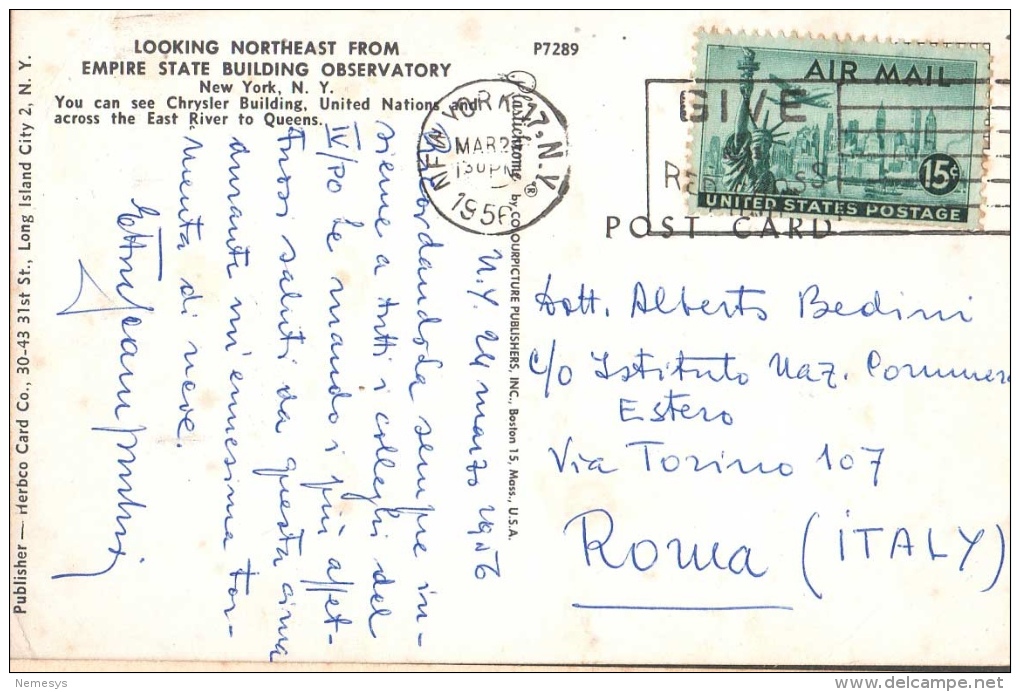 LOOKING NORTHEAST FROM
EMPIRE STATE BUILDING OBSERVATORY
New York, N. Y.
You can see Chrysler Building, United Nations and
across the East River to Queens.
P7289
NEW YORK 17, N.Y.
MAR 2
130 PM
1956
GIVE
RED CROSS
AIR MAIL
15c
UNITED STATES POSTAGE
POST CARD
Plastichrome ® by COLOURPICTURE PUBLISHERS, INC., Boston 15, Mass., U.S.A.
Publisher — Herbco Card Co., 30-43 31st St., Long Island City 2, N. Y.
N.Y. 24 marzo 1956
Ricordandola sempre in-
sieme a tutti i colleghi del
IV/PO Le mando i più affet-
tuosi saluti da questa cima
durante un'ennesima tor-
menta di neve.
Dott. Alberto Bedini
c/o Istituto Naz. Commer
Estero
Via Torino 107
Roma (ITALY)
Nemesys
delcampe.net